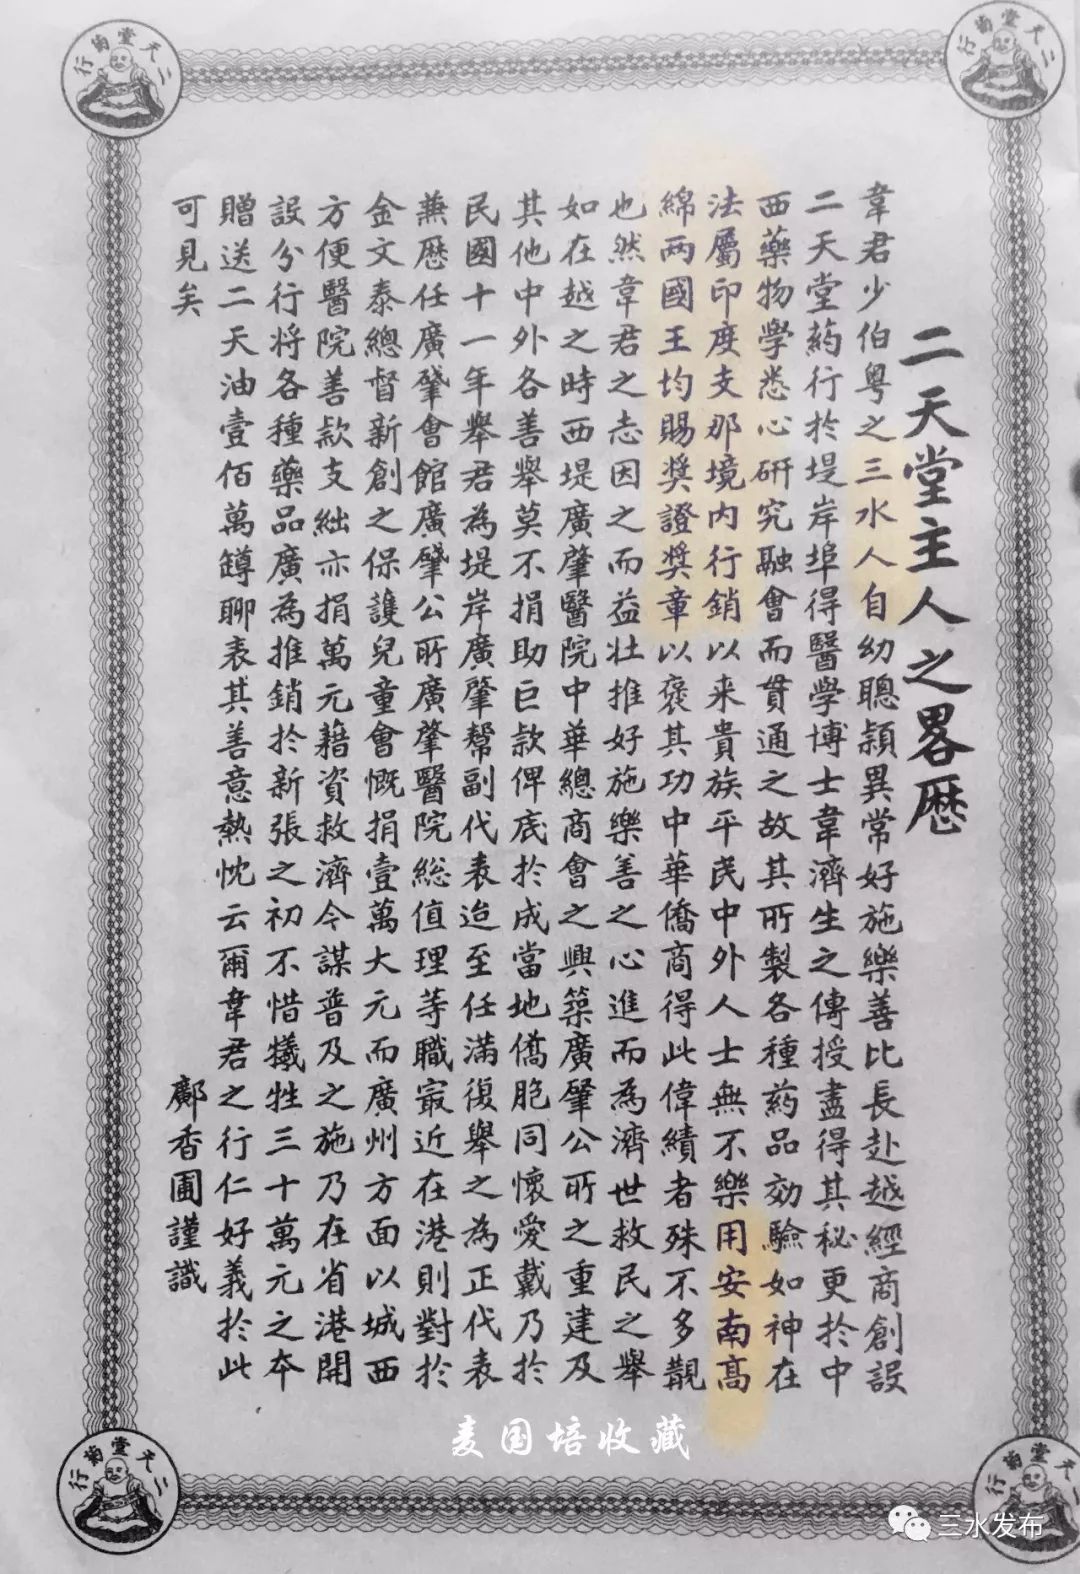 二天堂主人之畧歷
韋君少伯粵之三水人自幼聰頴異常好施樂善比長赴越經商創設
二天堂葯行於堤岸埠得醫學博士韋濟生之傳授盡得其秘更於中
西藥物學悉心研究融會而貫通之故其所製各種葯品効驗如神在
法屬印度支那境內行銷以来貴族平民中外人士無不樂用安南高
綿两國王均賜奬證奬章以褒其功中華僑商得此偉績者殊不多覯
也然韋君之志因之而益壯推好施樂善之心進而為濟世救民之舉
如在越之時西堤廣肇醫院中華總商會之興築廣肇公所之重建及
其他中外各善舉莫不捐助巨款俾底於成當地僑胞同懷愛戴乃於
民國十一年舉君為堤岸廣肇幫副代表迨至任滿復舉之為正代表
兼歷任廣肇會館廣肇公所廣肇醫院総值理等職寂近在港則對於
金文泰總督新創之保護兒童會慨捐壹萬大元而廣州方面以城西
方便醫院善款支絀亦捐萬元藉資救濟今謀普及之施乃在省港開
設分行將各種藥品廣為推銷於新張之初不惜犧牲三十萬元之夲
贈送二天油壹佰萬罇聊表其善意熱忱云爾韋君之行仁好義於此
可見矣
鄺香圃謹識
二天堂葯行
二天堂葯行
二天堂葯行
二天堂葯行
麦国培收藏
三水发布